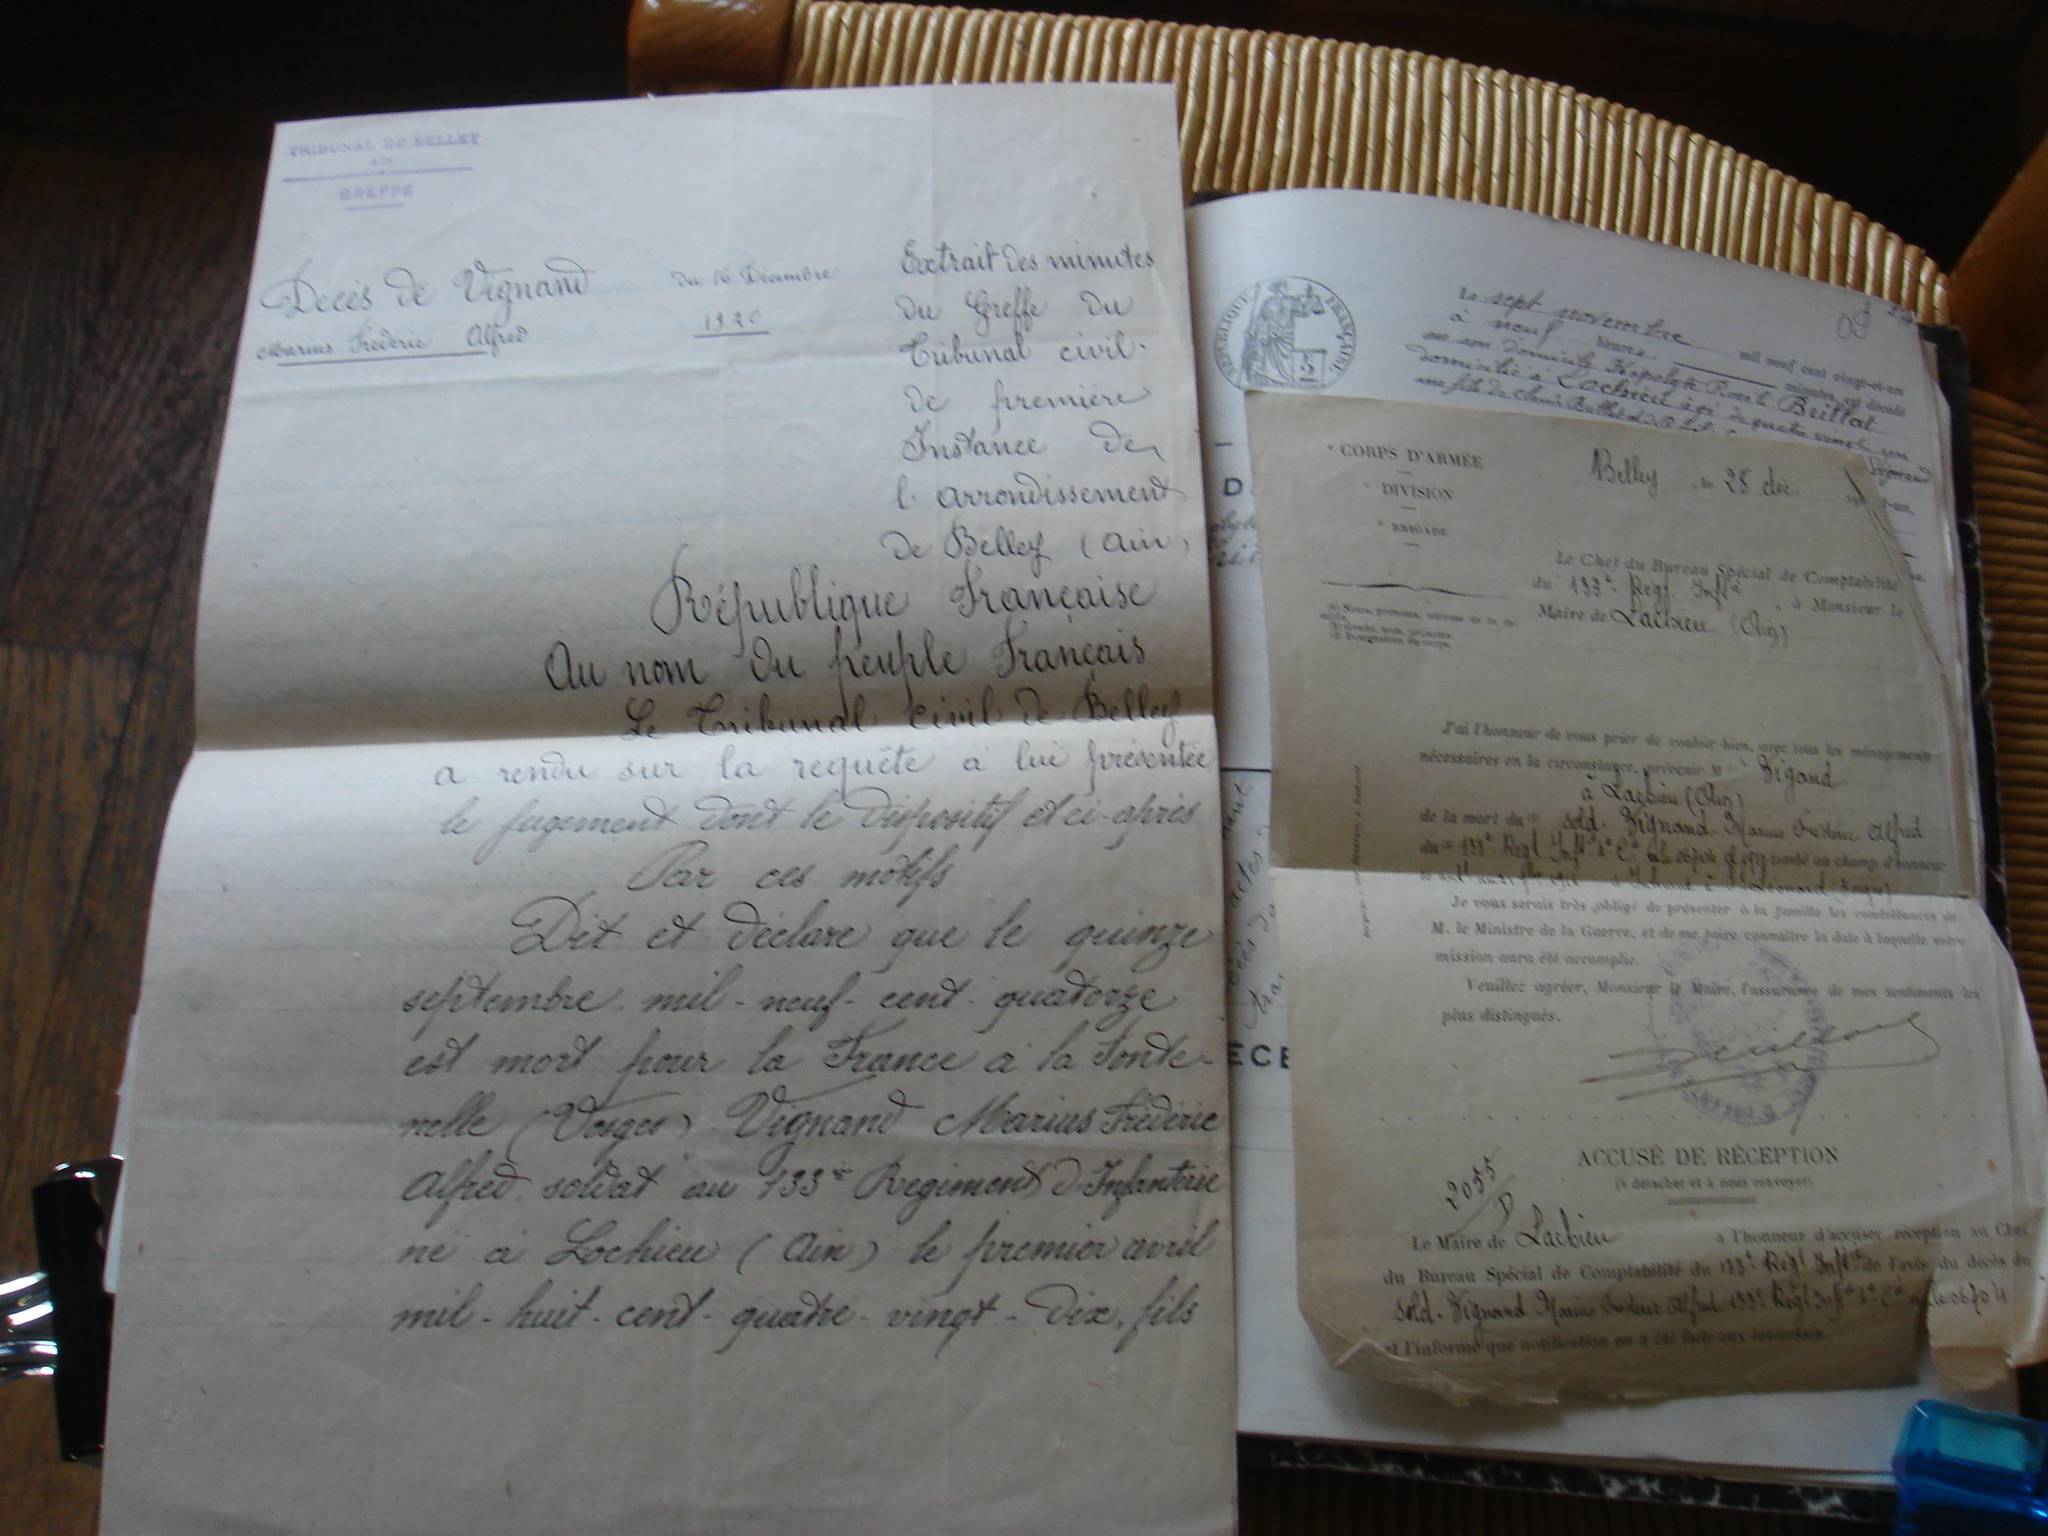 TRIBUNAL DE BELLEY
AIN
GREFFE
Décès de Vignand
Marius Frédéric Alfred
du 16 Décembre
1920
Extrait des minutes
du Greffe du
Tribunal civil
de première
Instance de
l'arrondissement
de Belley (Ain)
République Française
Au nom du peuple Français
Le Tribunal Civil de Belley
a rendu sur la requête à lui présentée
le jugement dont le dispositif est ci-après
Par ces motifs
Dit et déclare que le quinze
septembre mil-neuf-cent-quatorze
est mort pour la France à la Fonte-
nelle (Vosges) Vignand Marius Frédéric
Alfred soldat au 133e Regiment d'Infanterie
né à Lochieu (Ain) le premier avril
mil-huit-cent-quatre-vingt-dix, fils
RÉPUBLIQUE FRANÇAISE
Le sept novembre mil neuf cent vingt-et-un
à neuf heures minutes, est décédé
en son domicile Hypolyte Brillat
domicilié à Lochieu âgé de quatre vingt un
e CORPS D'ARMÉE
e DIVISION
e BRIGADE
Belley, le 28 déc.
Le Chef du Bureau Spécial de Comptabilité
du 133e Regt Inftie à Monsieur le
Maire de Lachieu (Ain)
J'ai l'honneur de vous prier de vouloir bien, avec tous les ménagements
nécessaires en la circonstance, prévenir M Vigand
à Lachieu (Ain)
de la mort du sold. Vignand Marius Frédéric Alfred
du 133e Regt Inftie tombé au champ d'honneur
Je vous serais très obligé de présenter à la famille les condoléances de
M. le Ministre de la Guerre, et de me faire connaître la date à laquelle votre
mission aura été accomplie.
Veuillez agréer, Monsieur le Maire, l'assurance de mes sentiments les
plus distingués.
ACCUSÉ DE RÉCEPTION
(à détacher et à nous renvoyer)
2055/D
Le Maire de Lachieu a l'honneur d'accuser réception au Chef
du Bureau Spécial de Comptabilité du 133e Regt Inftie de l'avis du décès du
sold. Vignand Marius Frédéric Alfred 133e Regt Inftie
et l'informe que notification en a été faite aux intéressés.